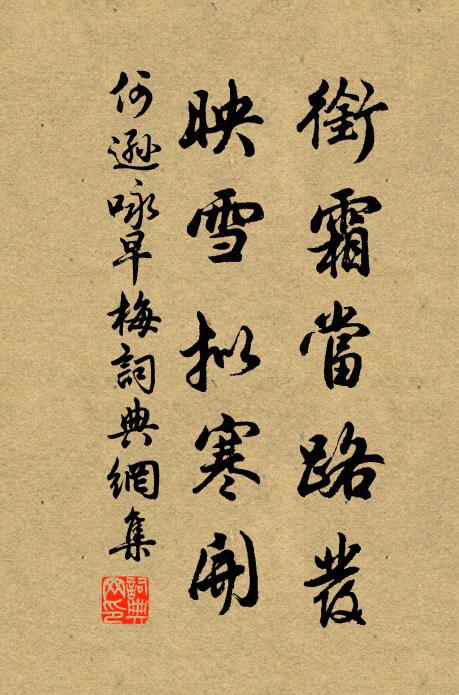 銜霜當路發
映雪拟寒開
何遜咏早梅詞典網集
詞典網印